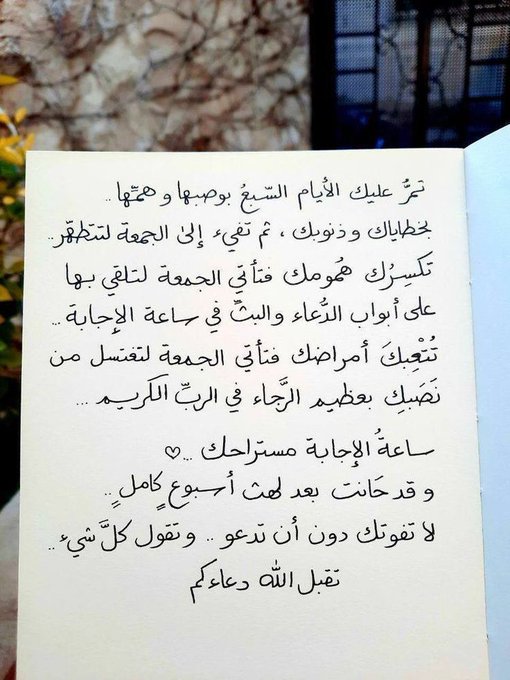 تمرُّ عليك الأيام السّبعُ بوصبها وهمّها..
بخطاياك وذنوبك ، ثم تفيء إلى الجمعة لتتطهّر..
تكسِرُك هُمومك فتأتي الجمعة لتلقي بها
على أبواب الدُّعاء والبثِّ في ساعة الإجابة ...
تُتْعِبكَ أمراضك فتأتي الجمعة لتغتسل من
نَصَبكِ بعظيم الرَّجاء في الربِّ الكريم ...
ساعةُ الإجابة مستراحك ..♡
وقد حَانت بعد لهث أسبوعٍ كاملٍ ..
لا تفوتك دون أن تدعو .. وتقول كلَّ شيء ..
تقبل الله دعاءكم